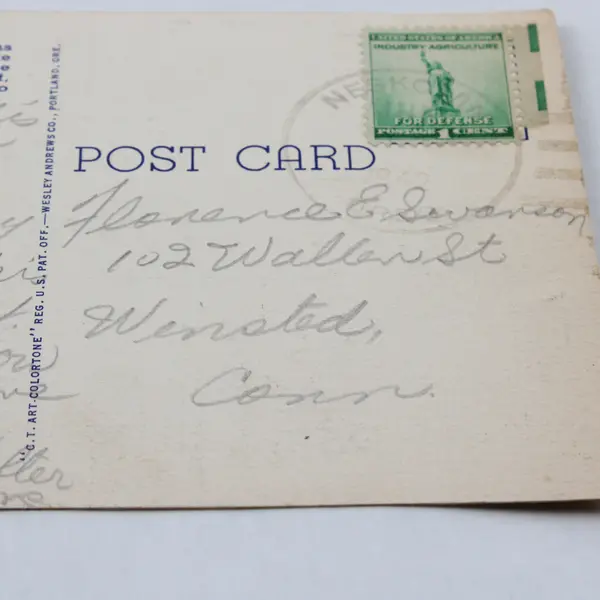 UNITED STATES OF AMERICA
INDUSTRY AGRICULTURE
FOR DEFENSE
POSTAGE 1 CENT
POST CARD
Florence E. Swanson
102 Wallen St
Winsted,
Conn.
"C.T. ART-COLORTONE" REG. U.S. PAT. OFF.—WESLEY ANDREWS CO., PORTLAND, ORE.